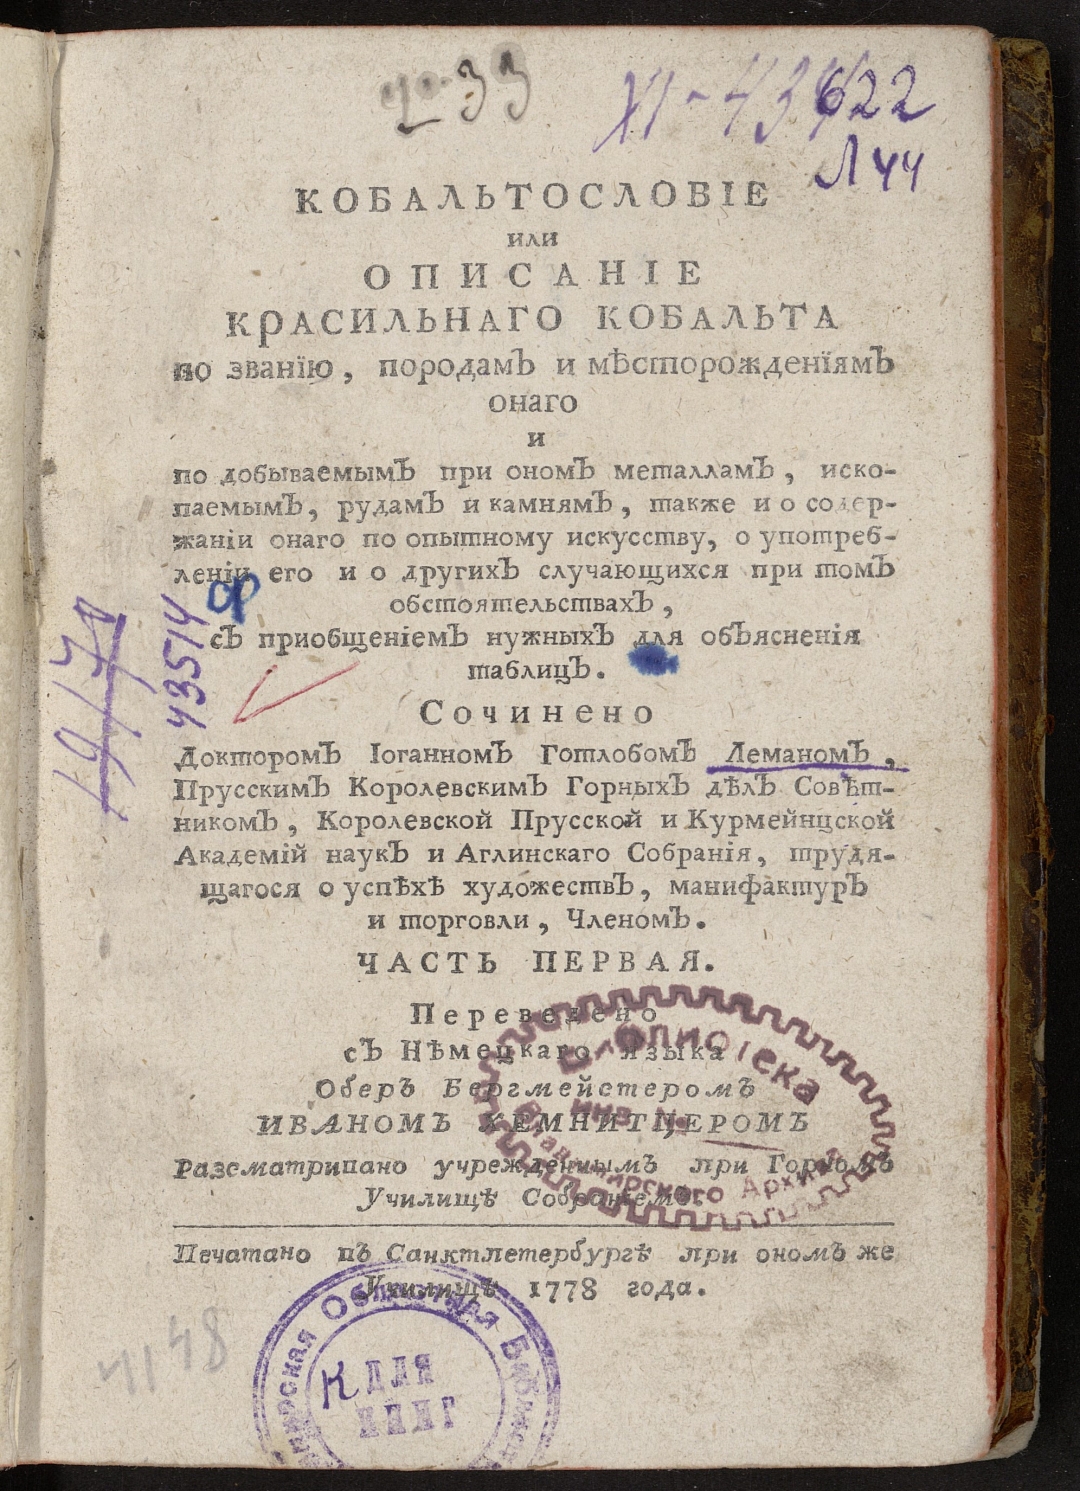 33
XI-43
622
Л44
КОБАЛЬТОСЛОВІЕ
или
ОПИСАНІЕ
КРАСИЛЬНАГО КОБАЛЬТА
по званїю, породамЪ и мѣсторожденїямЪ
онаго
и
по добываемымЪ при ономЪ металламЪ, иско-
паемымЪ, рудамЪ и камнямЪ, также и о содер-
жанїи онаго по опытному искусству, о употреб-
ленїи его и о другихЪ случающихся при томЪ
обстоятельствахЪ,
сЪ приобщенїемЪ нужныхЪ для обЪясненїя
таблицЪ.
Сочинено
ДокторомЪ ІоганномЪ ГотлобомЪ ЛеманомЪ,
ПрусскимЪ КоролевскимЪ ГорныхЪ дѣлЪ Совѣт-
никомЪ, Королевской Прусской и Курмейнцской
Академїй наукЪ и Аглинскаго Собранїя, трудя-
щагося о успѣхѣ художествЪ, манифактурЪ
и торговли, ЧленомЪ.
ЧАСТЬ ПЕРВАЯ.
Переведено
сЪ Нѣмецкаго языка
ОберЪ БергмейстеромЪ
ИВАНОМЪ ХЕМНИТЦЕРОМЪ
Разсматривано учрежденнымЪ при ГорномЪ
Училищѣ СобранїемЪ.
Печатано вЪ Санктпетербургѣ при ономЪ же
Училищѣ 1778 года.
43514
ср
Библиотека
инв №
Владимирского Архива
Областная Библиот
К ДЛЯ
КНИГ
4148